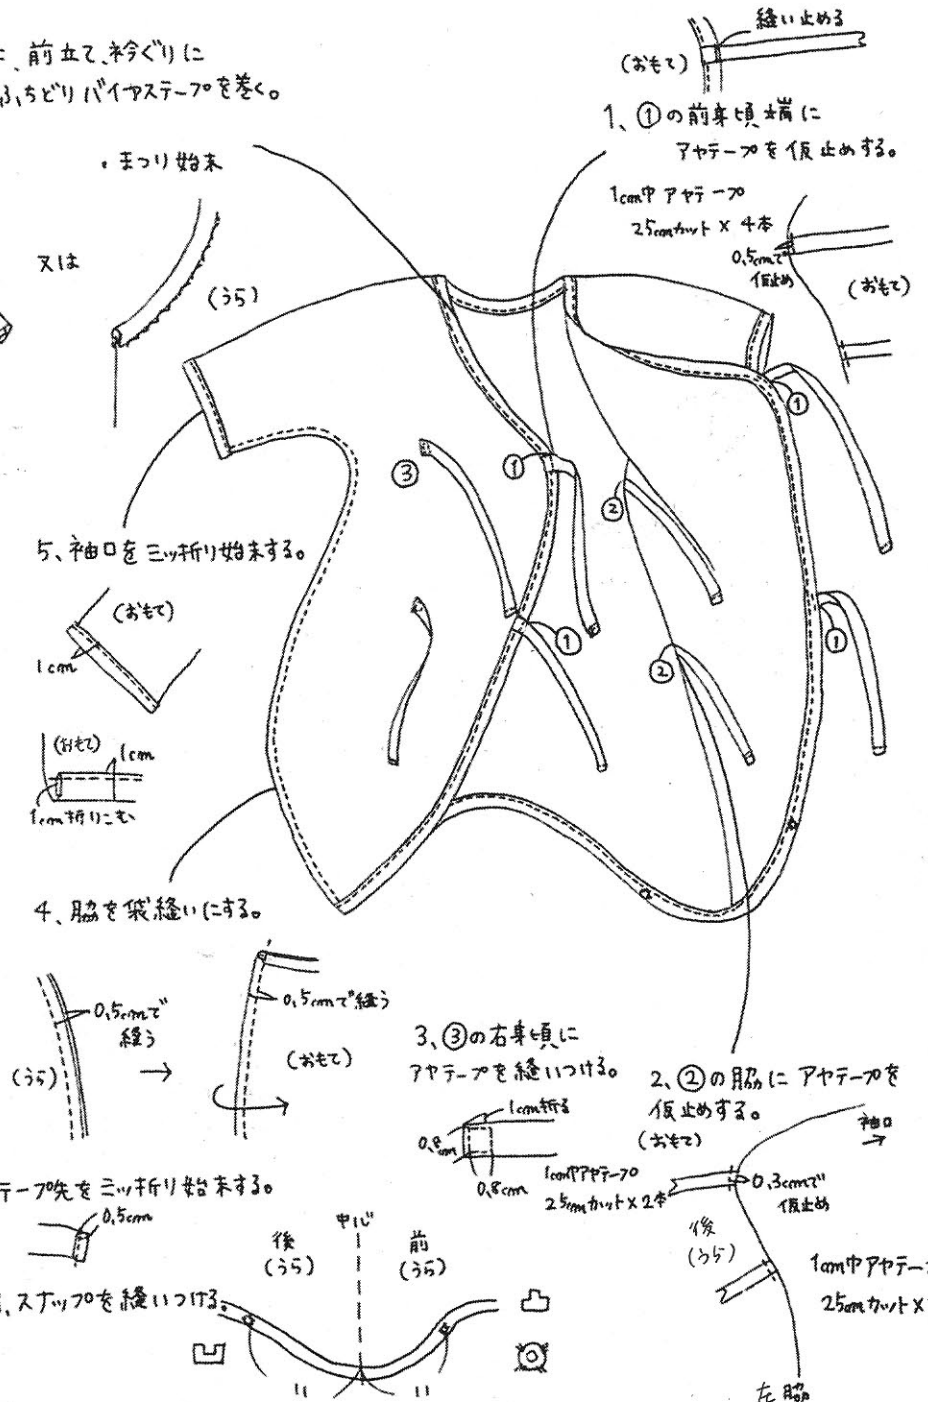 前立て、衿ぐりに
ふちどりバイアステープを巻く。
・まつり始末
又は
(うら)
縫い止める
(おもて)
1、①の前身頃端に
アヤテープを仮止めする。
1cm巾アヤテープ
25cmカット×4本
0.5cmで
仮止め
(おもて)
①
①
②
③
①
②
①
5、袖口を三ッ折り始末する。
(おもて)
1cm
(おもて)
1cm
1cm折りこむ
4、脇を袋縫いにする。
0.5cmで
縫う
(うら)
→
0.5cmで縫う
(おもて)
3、③の右身頃に
アヤテープを縫いつける。
1cm折る
0.8cm
0.8cm
1cm巾アヤテープ
25cmカット×2本
2、②の脇にアヤテープを
仮止めする。
(おもて)
袖口
→
0.3cmで
仮止め
後
(うら)
1cm巾アヤテー
25cmカット×
左脇
テープ先を三ッ折り始末する。
0.5cm
、スナップを縫いつける。
後
(うら)
中心
前
(うら)
11
11